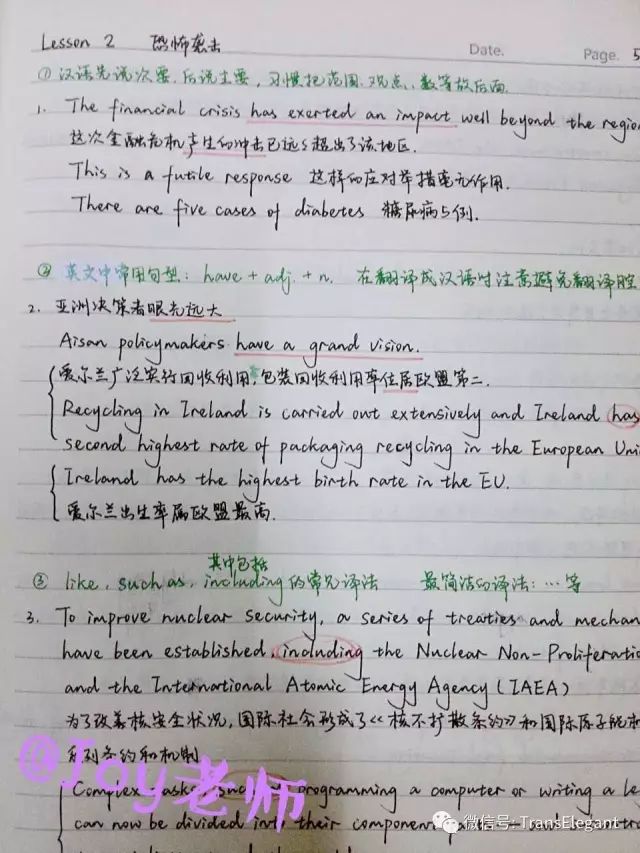 Lesson 2 恐怖袭击 Date. Page. 5
① 汉语先说次要,后说主要,习惯把范围、观点、数等放后面.
1. The financial crisis has exerted an impact well beyond the regio
这次金融危机产生的冲击已远远超出了该地区.
This is a futile response 这样的应对举措毫无作用.
There are five cases of diabetes 糖尿病5例.
② 英文中常用句型: have + adj. + n. 在翻译成汉语时注意避免翻译腔
2. 亚洲决策者眼光远大
Aisan policymakers have a grand vision.
爱尔兰广泛实行回收利用,包装回收利用率位居欧盟第二.
Recycling in Ireland is carried out extensively and Ireland has
second highest rate of packaging recycling in the European Uni
Ireland has the highest birth rate in the EU.
爱尔兰出生率属欧盟最高.
其中包括
③ like, such as, including的常见译法 最简洁的译法: …等
3. To improve nuclear security, a series of treaties and mechan
have been established, including the Nuclear Non-Proliferatio
and the International Atomic Energy Agency (IAEA)
为了改善核安全状况,国际社会形成了《核不扩散条约》和国际原子能机
系列条约和机制
@Joy老师
Complex tasks such programming a computer or writing a le
can now be divided into their component
微信号: TransElegant